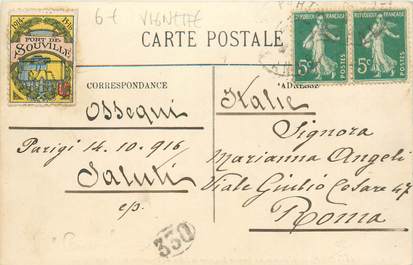 6-f VIGNETTE
1914 191
FORT DE
SOUVILLE
CARTE POSTALE
REPUBLIQUE FRANÇAISE
5c POSTES
REPUBLIQUE FRANÇAISE
5c POSTES
CORRESPONDANCE
ADRESSE
Ossequi
Parigi 14.10.916
Saluti
Italie
Signora
Marianna Angeli
Viale Giulio Cesare 47
Roma
330